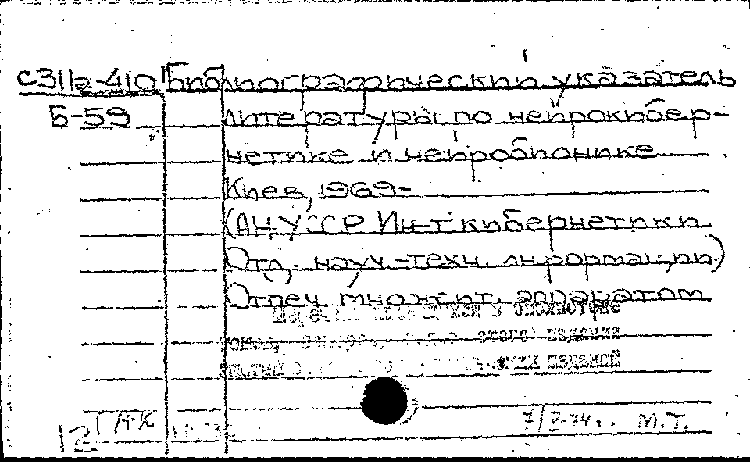 с311а-410 Библиографический указатель
Б-59 литературы по нейрокибер-
нетике и нейробионике
Киев, 1969-
(АН УССР Ин-т кибернетики
Отд. науч.-техн. информации)
Отпеч. множит. аппаратом
в библиотеке
издания
изданий
12 ГАК 7/X-74г. М.Т.